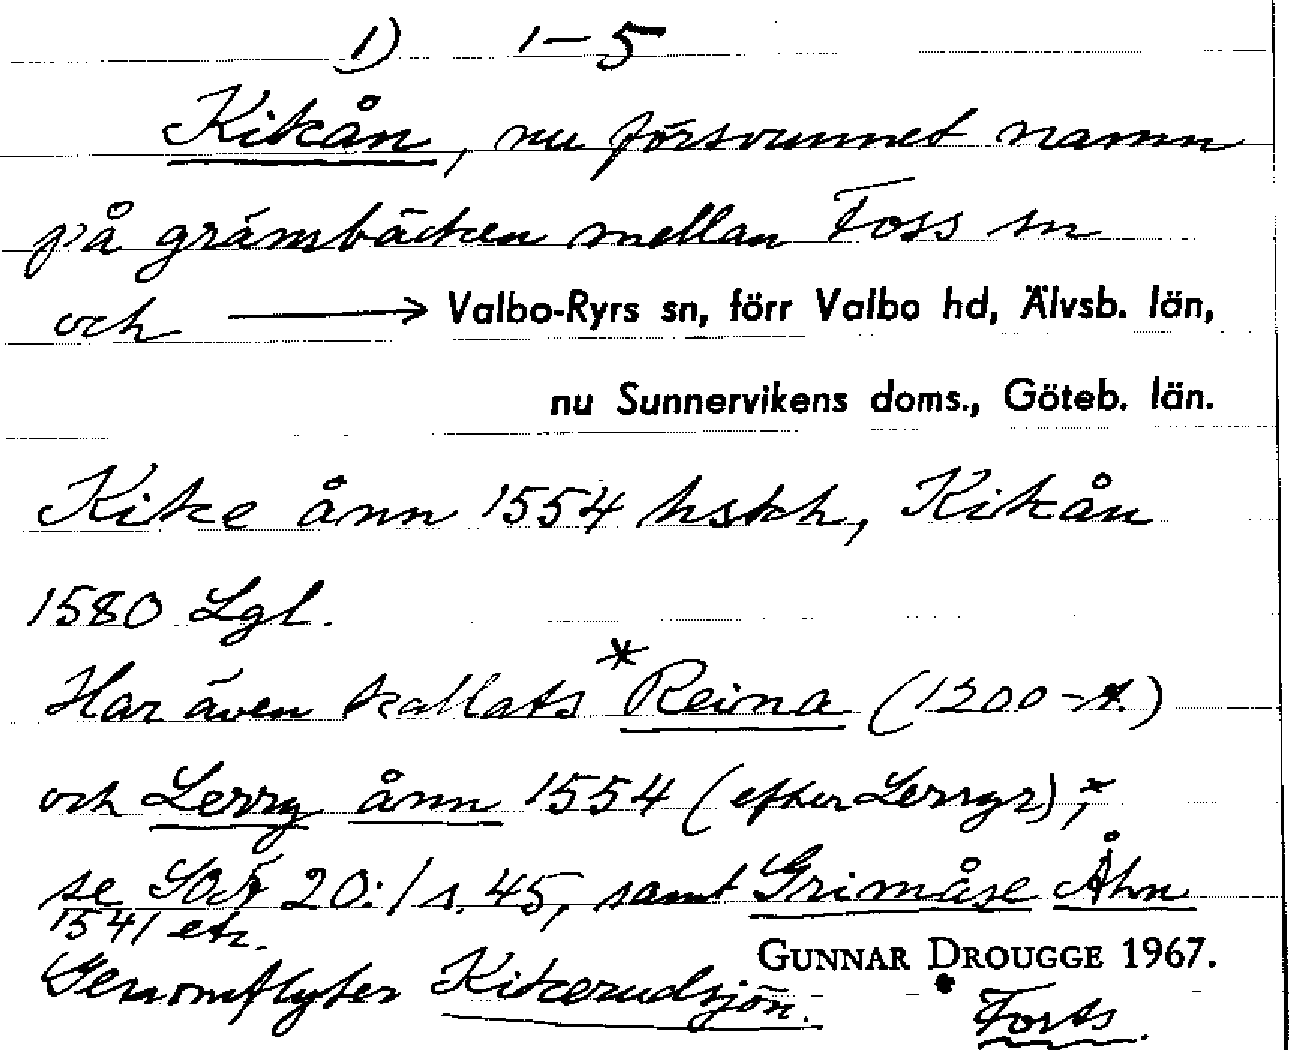 1) 1–5
Kikån, nu försvunnet namn
på gränsbäcken mellan Foss sn
och → Valbo-Ryrs sn, förr Valbo hd, Älvsb. län,
nu Sunnervikens doms., Göteb. län.
Kike ånn 1554 hskh, Kikån
1580 Lgl.
Har även kallats *Reina (1200-t.)
och Lerry ånn 1554 (efter Lerryr),
se SOÄ 20:1 s. 45, samt Grimåse Åhn
1541 etc.
Genomflyter Kikerudsjön.
GUNNAR DROUGGE 1967.
Forts.